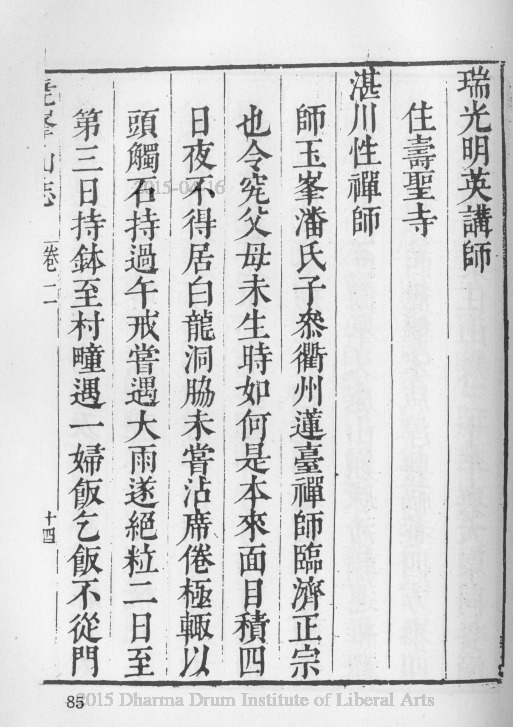 瑞光明英講師
住壽聖寺
湛川性禪師
師玉峯潘氏子叅衢州蓮臺禪師臨濟正宗
也令究父母未生時如何是本來面目積四
日夜不得居白龍洞脇未嘗沾席倦極輒以
頭觸石持過午戒嘗遇大雨遂絕粒二日至
第三日持鉢至村疃遇一婦飯乞飯不從門
山志 卷二 十四
85
2015-04-16
2015 Dharma Drum Institute of Liberal Arts